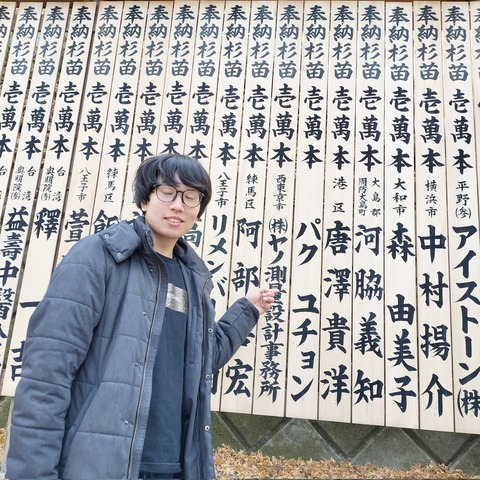 奉納杉苗壱萬本 平野 アイストーン(株
奉納杉苗壱萬本 横浜市 中村揚介
奉納杉苗壱萬本 大和市 森由美子
奉納杉苗壱萬本 大島郡 周防大島町 河脇義知
奉納杉苗壱萬本 港区 唐澤貴洋
奉納杉苗壱萬本 パク ユチョン
奉納杉苗壱萬本 西東京市 (株)ヤノ測量設計事務所
奉納杉苗壱萬本 練馬区 阿部 宏
奉納杉苗壱萬本 八王子市 リメンバ
奉納杉苗壱萬本 高
奉納杉苗壱萬
奉納杉苗壱萬本
奉納杉苗壱萬本 練馬区 飯
奉納杉苗壱萬本 八王子市 萱
奉納杉苗壱萬本 台湾 釋一吉
奉納杉苗壱萬本 台湾 益壽中醫